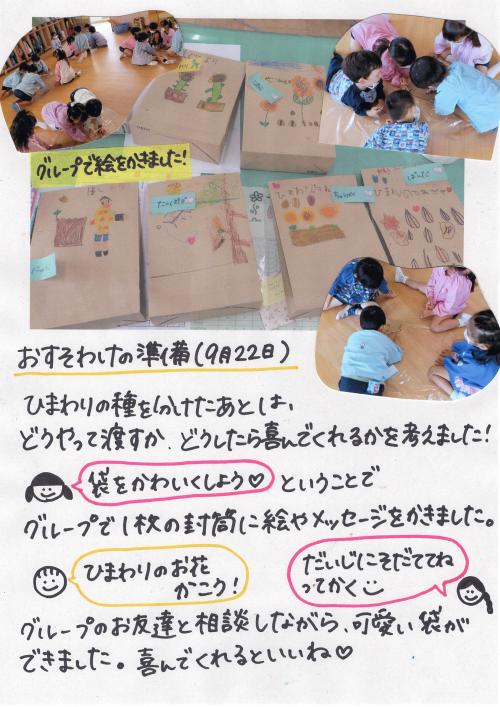 グループで絵をかきました!
おすそわけの準備(9月22日)
ひまわりの種を分けたあとは、
どうやって渡すか、どうしたら喜んでくれるかを考えました!
袋をかわいくしよう♡ ということで
グループで1枚の封筒に絵やメッセージをかきました。
ひまわりのお花
かこう!
だいじにそだててね
ってかく
グループのお友達と相談しながら、可愛い袋が
できました。喜んでくれるといいね♡